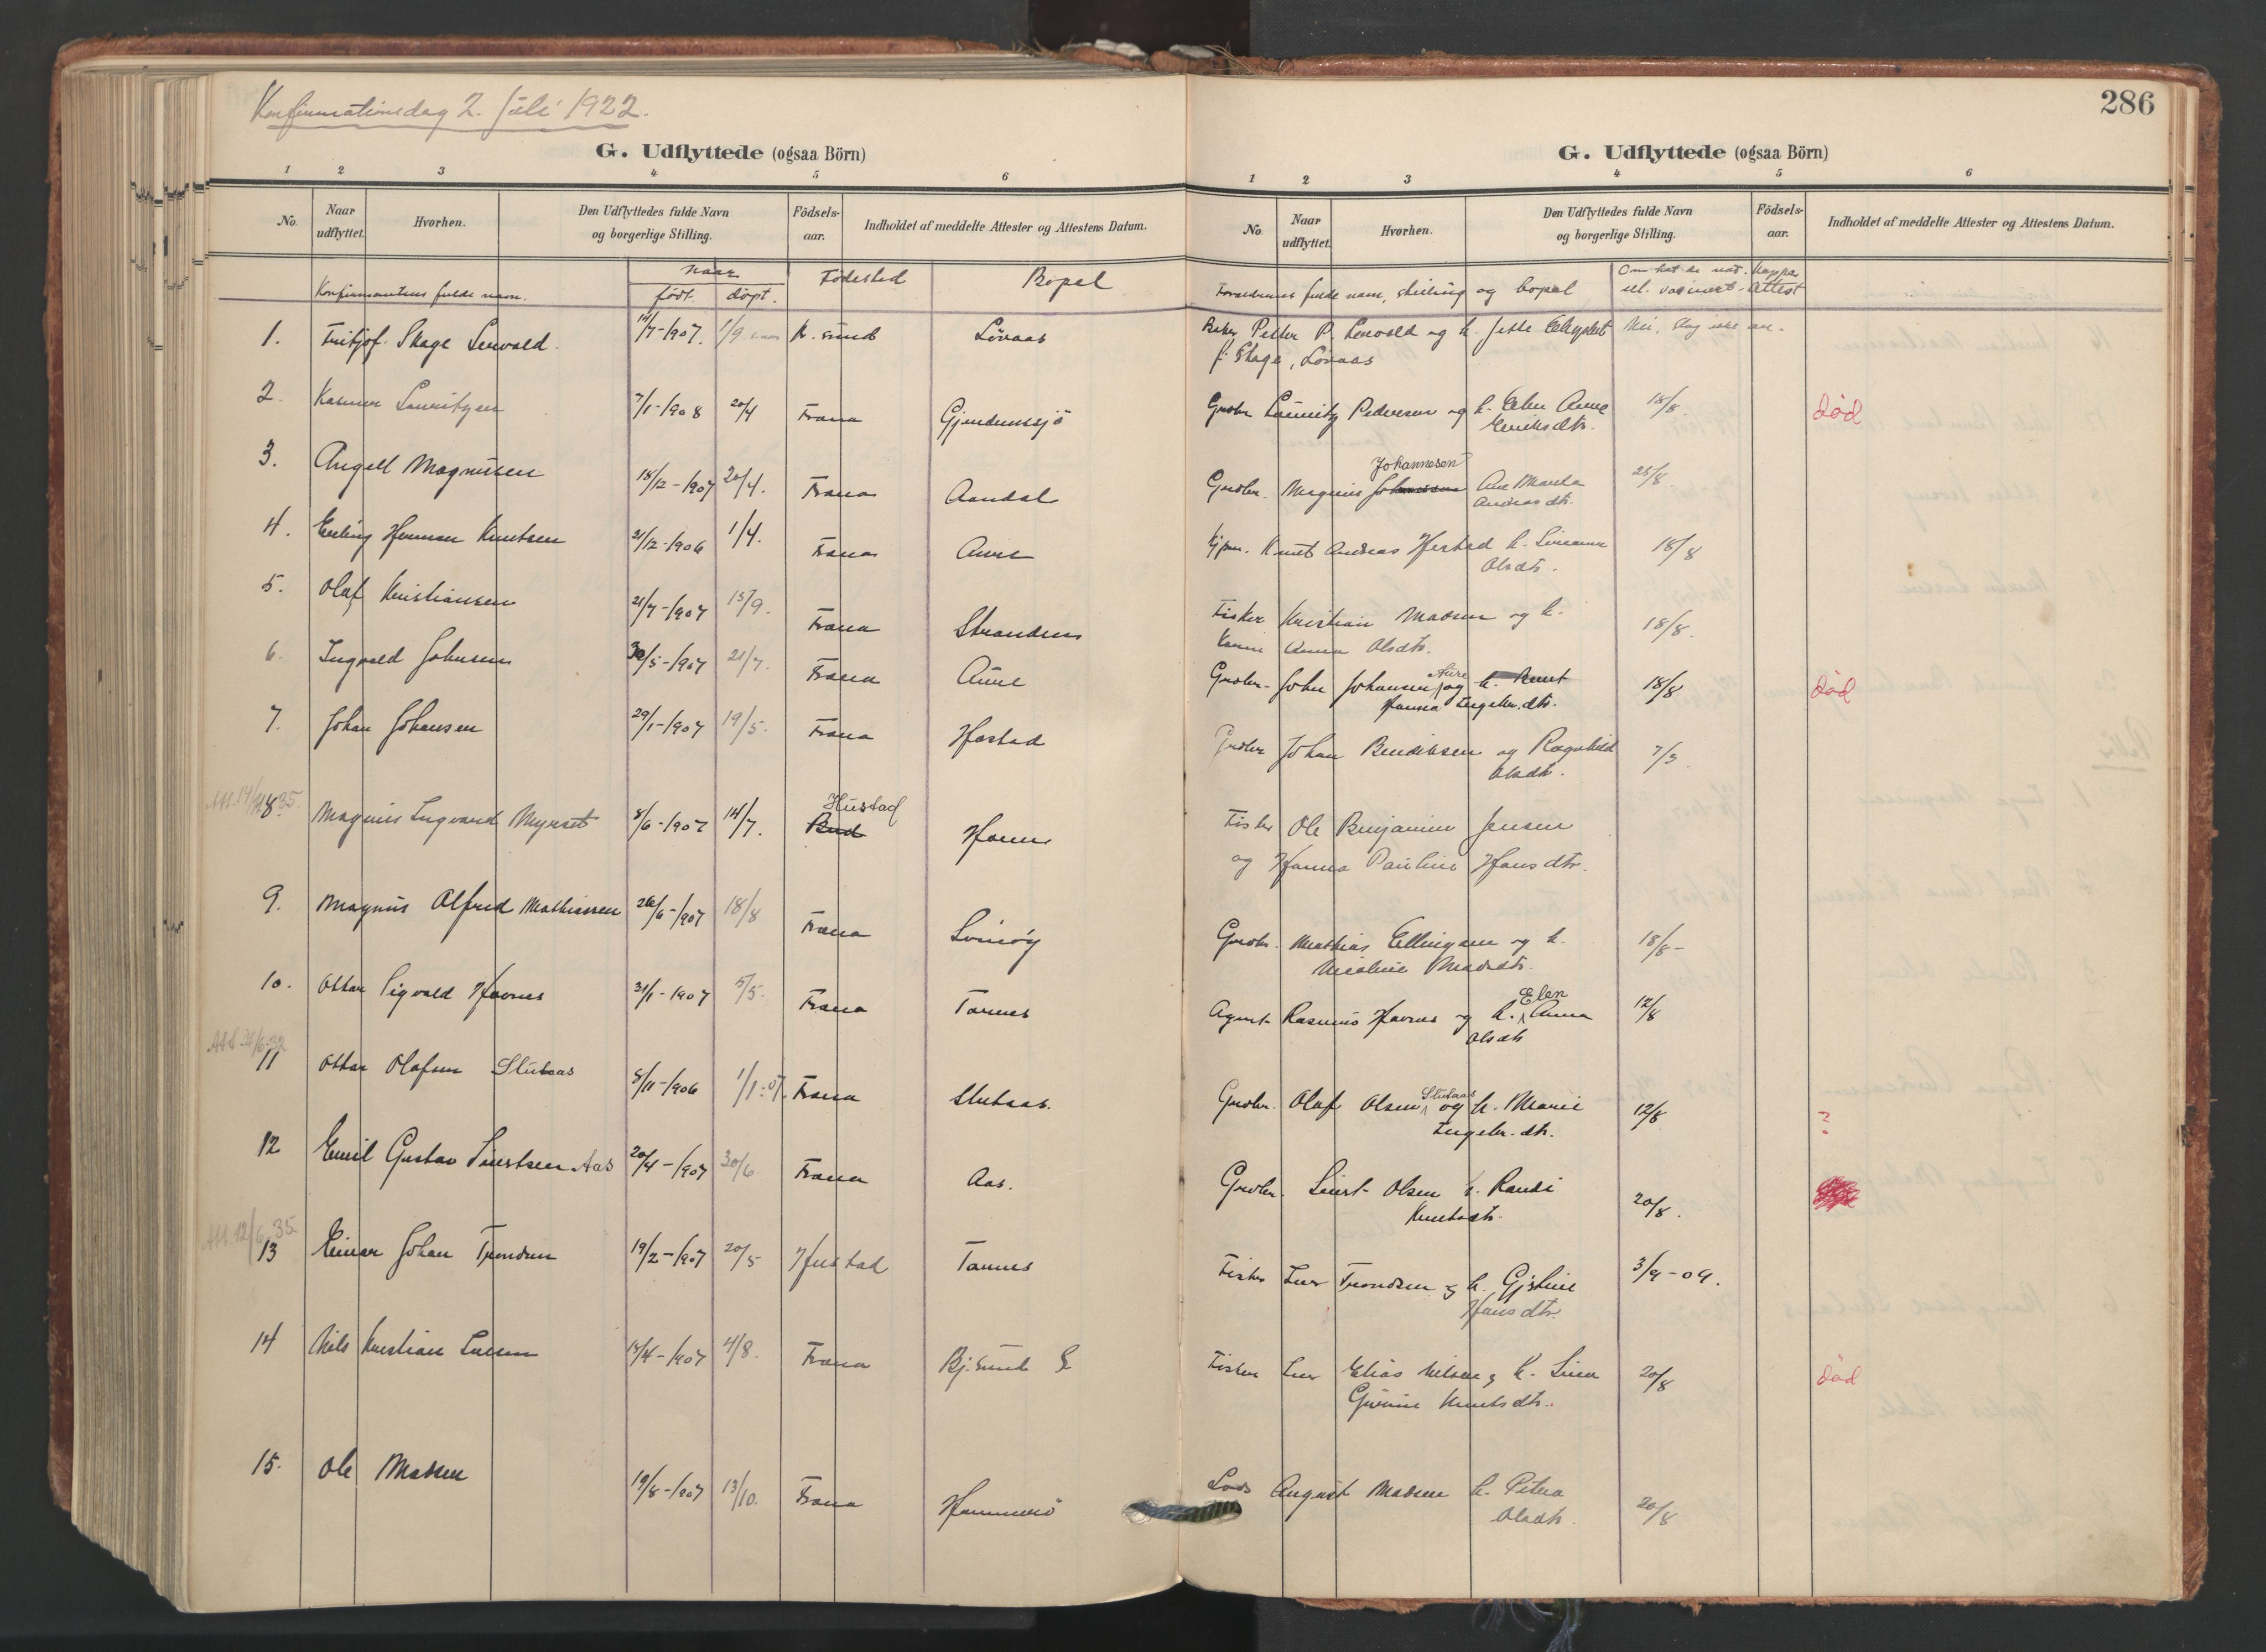 Konfirmationsdag 2. juli 1922.
286
G. Udflyttede (ogsaa Börn)
1 2 3 4 5 6
No. Naar udflyttet. Hvorhen. Den Udflyttedes fulde Navn og borgerlige Stilling. Födsels-aar. Indholdet af meddelte Attester og Attestens Datum.
Konfirmantens fulde navn. naar født. døpt. Fødested Bopæl
1. Fritjof Skage Lervold. 14/7-1907. 1/9 K.sund Lövaas
2. Kasmer Lauritzen 7/1-1908 20/4 Fræna Gjendemssjö
3. Angell Magnusen 18/12-1907 20/4. Fræna Aandal
4. Erling Herman Knutsen 21/12-1906 1/4. Fræna Aure
5. Olaf Kristiansen 21/7-1907 15/9. Fræna Stranden
6. Ingvald Johnsen 30/5-1907 21/7. Fræna Aure
7. Johan Johansen 29/1-1907 19/5. Fræna Hostad
Att. 14/11 35.
8. Magnus Ingvard Myrset 8/6-1907 14/7. Hustad Bud Havnes
9. Magnus Alfred Mathiassen 26/6-1907 18/8 Fræna Svinöy
10. Ottar Sigvald Havnes 31/1-1907 5/5. Fræna Tornes
11 Ottar Olafsen Stutaas 8/11-1906 1/1-07. Fræna Stutaas.
12 Emil Gustav Sivertsen Aas 20/4-1907 30/6 Fræna Aas.
Att. 12/6 35
13 Einar Johan Trondsen 19/2-1907 20/5 Hustad Tornes
14 Nils Kristian Larsen 15/4-1907 4/8. Fræna Bj.sund
15. Ole Madsen 19/8-1907 13/10. Fræna Hammersö
G. Udflyttede (ogsaa Börn)
1 2 3 4 5 6
No. Naar udflyttet. Hvorhen. Den Udflyttedes fulde Navn og borgerlige Stilling. Födsels-aar. Indholdet af meddelte Attester og Attestens Datum.
Forældrenes fulde navn, stilling og bopæl Om hat de nat. kopper el. vacinert. Attest
Petter P. Lervold og h. Jette
f. Skage, Lövaas
Grdbr Lauritz Pedersen og h. Elen Anne 18/8. død
Eriksdtr.
Johannesen
Grdbr. Magnus Ane Marta 25/8
Andreasdtr.
Knut Andreas Herstad h. 18/8
Olsdtr.
Fisker Kristian Madsen og h. 18/8.
Karen Anna Olsdtr.
Aure
Grdbr. John Johansen og h. Knut 18/8 død
Hanna Ingebr.dtr.
Grdbr Johan Bendiksen og Ragnhild 7/3
Olsdtr.
Fisker Ole Benjamin Jensen
og Hanna Pauline Hansdtr.
Grdbr. Mathias Ellingsen og h. 18/8-
Nicoline Madsdtr.
Elen
Agent Rasmus Havnes og h. Anna 12/8
Olsdtr
Stutaas
Grdbr. Olaf Olsen og h. Marie 12/8 ?
Ingebr.dtr.
Grdbr. Sivert Olsen h. Randi 20/8.
Knutsdtr.
Fisker Iver Trondsen og h. Gjertine 3/9-09.
Hansdtr.
Fisker Lars Elias Nilsen og h. Lina 20/8 død
Gurine Knutsdtr.
Lods August Madsen h. Petra 20/8
Olsdtr.